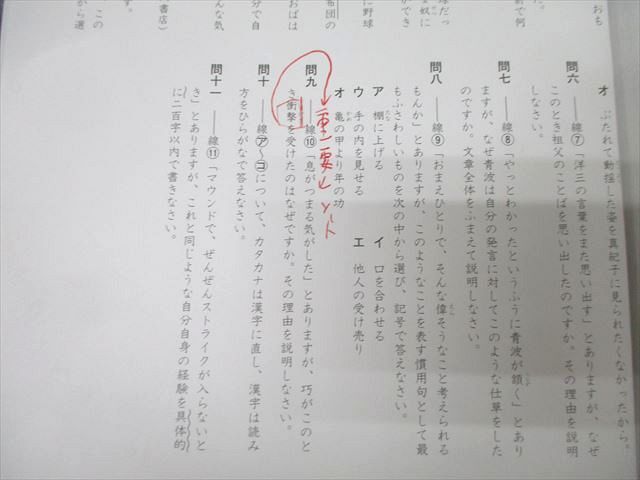 おも
た。
前で何
球だっ
な奴に
ができ
に野球
布団の
おばは
分で自
んな気
書店)
、この
から選
オ ぶたれて動揺した姿を真紀子に見られたくなかったから。
問六 ――線⑦「洋三の言葉をまた思い出す」とありますが、なぜ
このとき祖父のことばを思い出したのですか。その理由を説明
しなさい。
問七 ――線⑧「やっとわかったというふうに青波が頷く」とあり
ますが、なぜ青波は自分の発言に対してこのような仕草をした
のですか。文章全体をふまえて説明しなさい。
問八 ――線⑨「おまえひとりで、そんな偉そうなこと考えられる
もんか」とありますが、このようなことを表す慣用句として最
もふさわしいものを次の中から選び、記号で答えなさい。
ア 棚に上げる
イ 口を合わせる
ウ 手の内を見せる
エ 他人の受け売り
オ 亀の甲より年の功
重要
ノート
問九 ――線⑩「息がつまる気がした」とありますが、巧がこのと
き衝撃を受けたのはなぜですか。その理由を説明しなさい。
問十 ――線㋐～㋙について、カタカナは漢字に直し、漢字は読み
方をひらがなで答えなさい。
問十一 ――線⑪「マウンドで、ぜんぜんストライクが入らないと
き」とありますが、これと同じような自分自身の経験を具体的
に二百字以内で書きなさい。